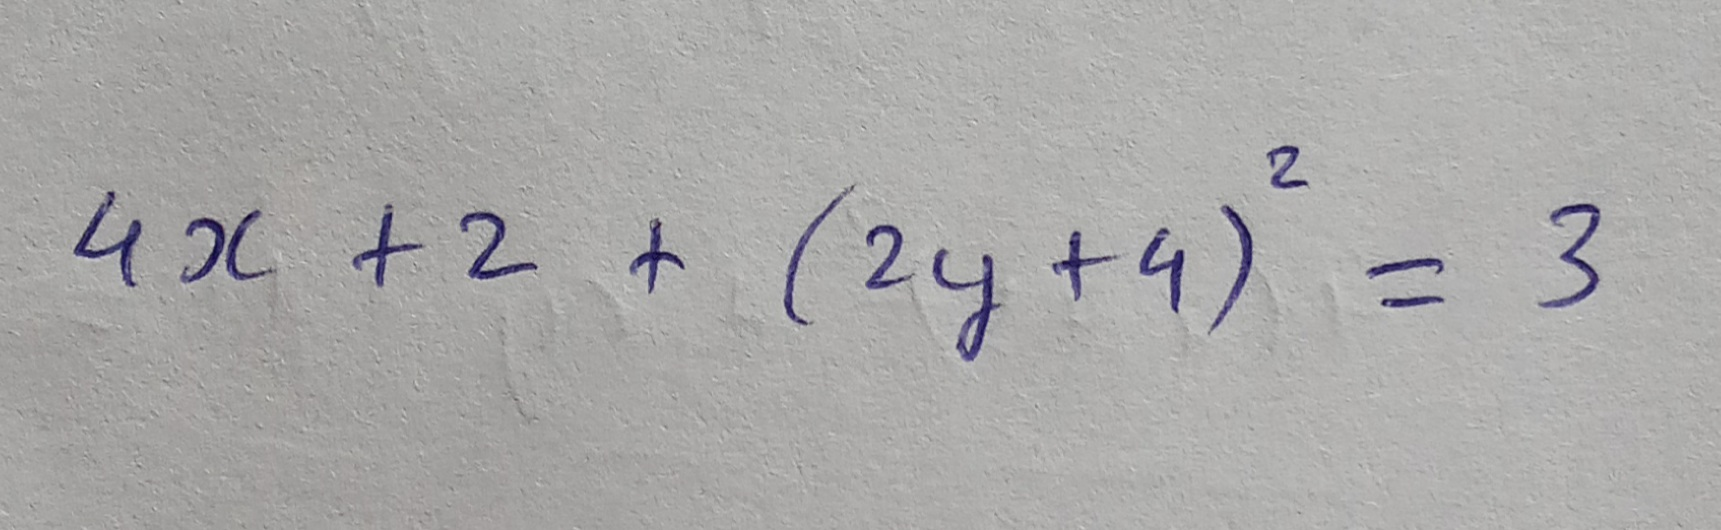 4x + 2 + (2y + 4)² = 3